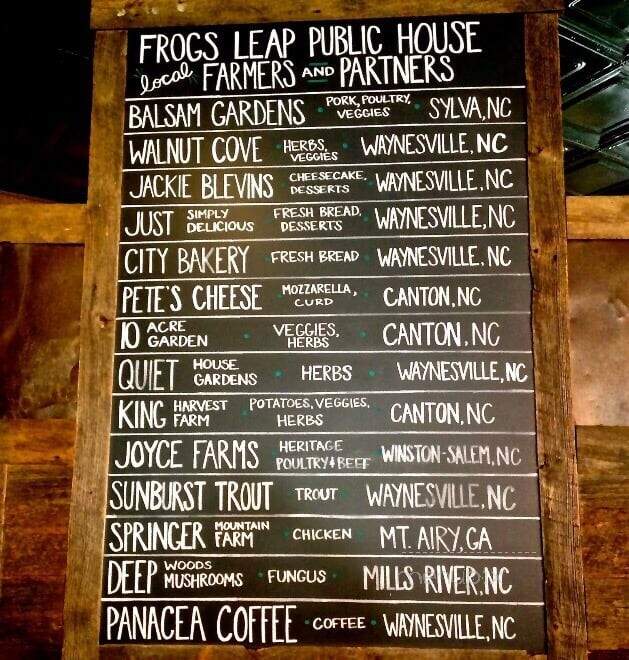 FROGS LEAP PUBLIC HOUSE
local FARMERS AND PARTNERS
BALSAM GARDENS · PORK, POULTRY, VEGGIES · SYLVA, NC
WALNUT COVE · HERBS, VEGGIES · WAYNESVILLE, NC
JACKIE BLEVINS · CHEESECAKE, DESSERTS · WAYNESVILLE, NC
JUST SIMPLY DELICIOUS · FRESH BREAD, DESSERTS · WAYNESVILLE, NC
CITY BAKERY · FRESH BREAD · WAYNESVILLE, NC
PETE'S CHEESE · MOZZARELLA, CURD · CANTON, NC
10 ACRE GARDEN · VEGGIES, HERBS · CANTON, NC
QUIET HOUSE GARDENS · HERBS · WAYNESVILLE, NC
KING HARVEST FARM · POTATOES, VEGGIES, HERBS · CANTON, NC
JOYCE FARMS · HERITAGE POULTRY & BEEF · WINSTON-SALEM, NC
SUNBURST TROUT · TROUT · WAYNESVILLE, NC
SPRINGER MOUNTAIN FARM · CHICKEN · MT. AIRY, GA
DEEP WOODS MUSHROOMS · FUNGUS · MILLS RIVER, NC
PANACEA COFFEE · COFFEE · WAYNESVILLE, NC